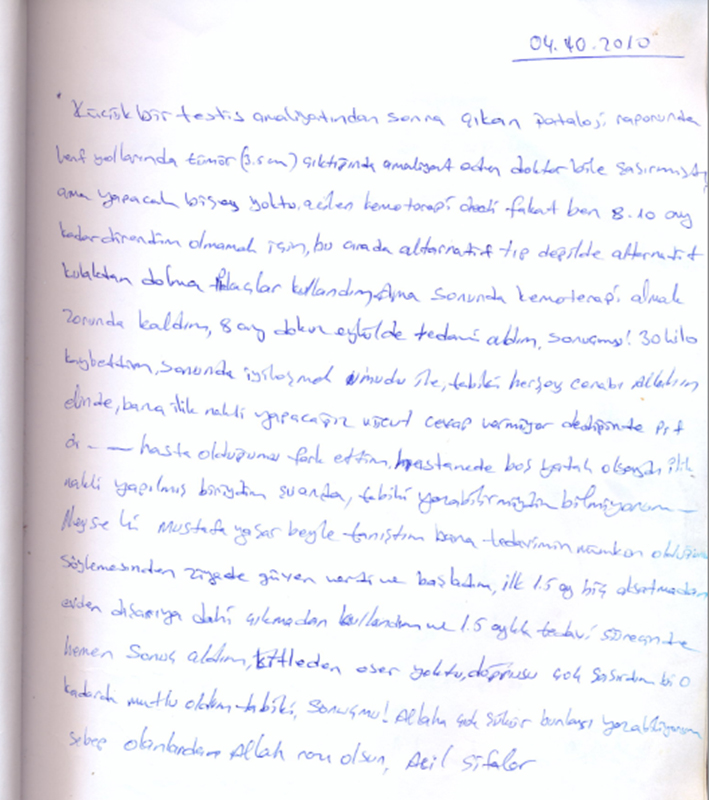 04.10.2010
Küçük bir testis ameliyatından sonra çıkan Pataloji raporunda
lenf yollarında tümör (3.5 cm) çıktığında ameliyat eden doktor bile şaşırmıştı
ama yapacak bişey yoktu. acilen kemoterapi dedi fakat ben 8.10 ay
kadar direndim olmamak için, bu arada alternatif tıp değilde alternatif
kulaktan dolma ilaçlar kullandım, Ama sonunda kemoterapi almak
zorunda kaldım, 8 ay dokuz eylülde tedavi aldım, sonuçmu! 30 kilo
kaybettim, sonunda iyileşmek umudu ile, tabiki herşey cenabı Allahım
elinde, bana ilik nakli yapacağız vücut cevap vermiyor dediğinde Prf
dr - — hasta olduğumu fark ettim, hastanede boş yatak olsaydı ilik
nakli yapılmış biriydim şuanda, tabiki yazabilirmiydim bilmiyorum —
Neyse ki Mustafa yaşar beyle tanıştım bana tedavimin mümkün olduğunu
söylemesinden ziyade güven verdi ve başladım, ilk 1.5 ay hiç aksatmadan
evden dışarıya dahi çıkmadan kullandım ve 1.5 aylık tedavi sürecinde
hemen Sonuç aldım, kitleden eser yoktu, doğrusu çok şaşırdım bi o
kadarda mutlu oldum tabiki, Sonuçmu! Allaha çok şükür bunları yazabiliyorum
sebep olanlardan Allah razı olsun, Acil Şifalar